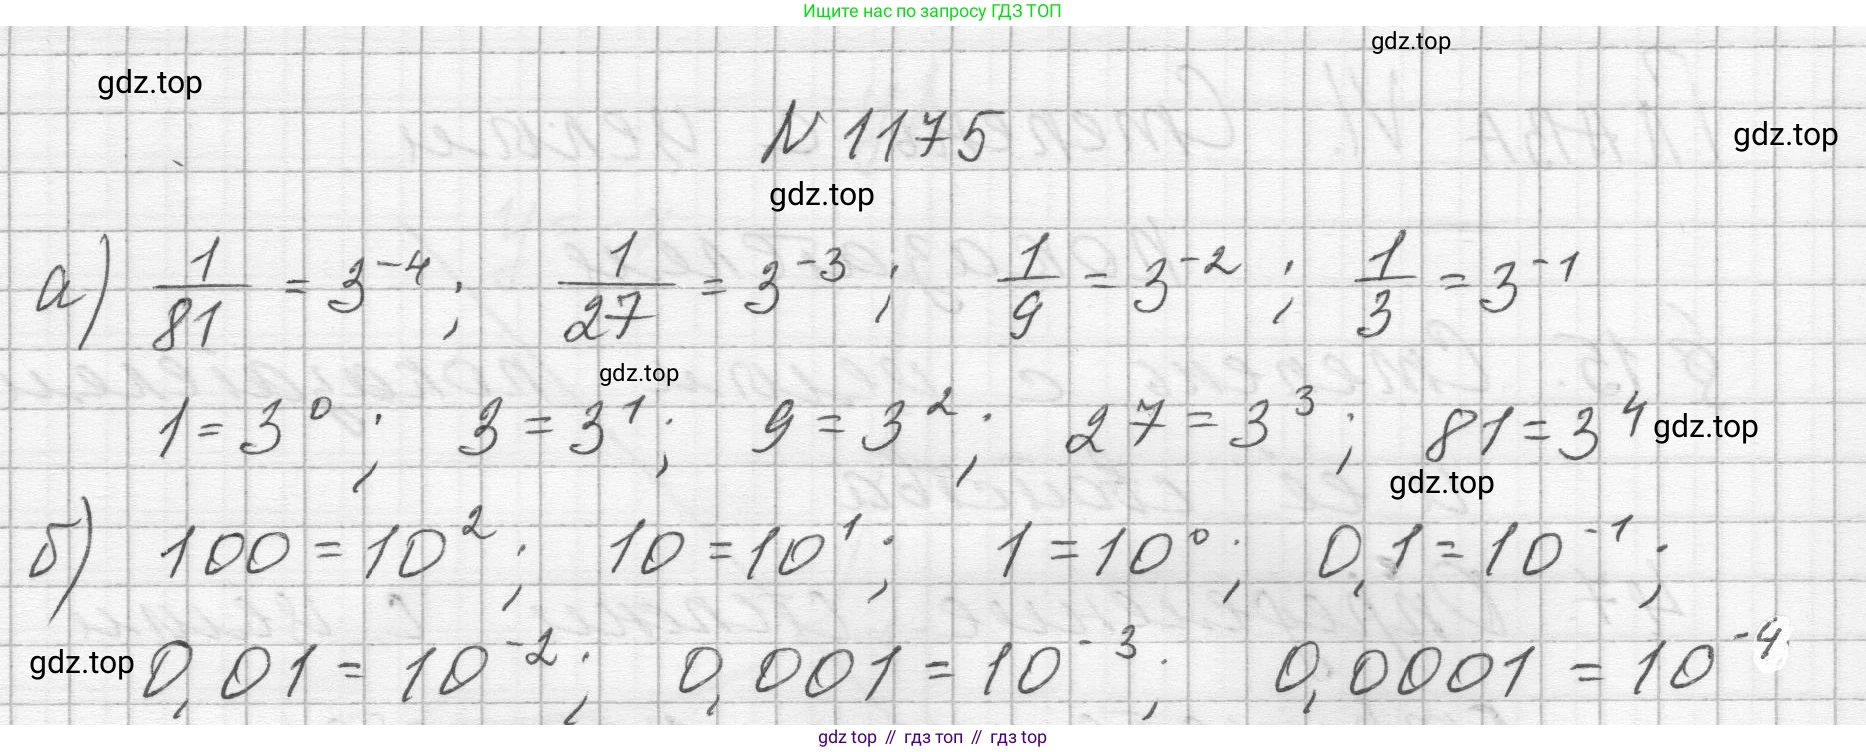 Ищите нас по запросу ГДЗ ТОП
gdz.top
gdz.top
N 1175
gdz.top
gdz.top
а) 1/81 = 3⁻⁴; 1/27 = 3⁻³; 1/9 = 3⁻²; 1/3 = 3⁻¹
gdz.top
1 = 3⁰; 3 = 3¹; 9 = 3²; 27 = 3³; 81 = 3⁴
gdz.top
gdz.top
б) 100 = 10²; 10 = 10¹; 1 = 10⁰; 0,1 = 10⁻¹;
gdz.top
0,01 = 10⁻²; 0,001 = 10⁻³; 0,0001 = 10⁻⁴
gdz top // гдз топ // гдз top